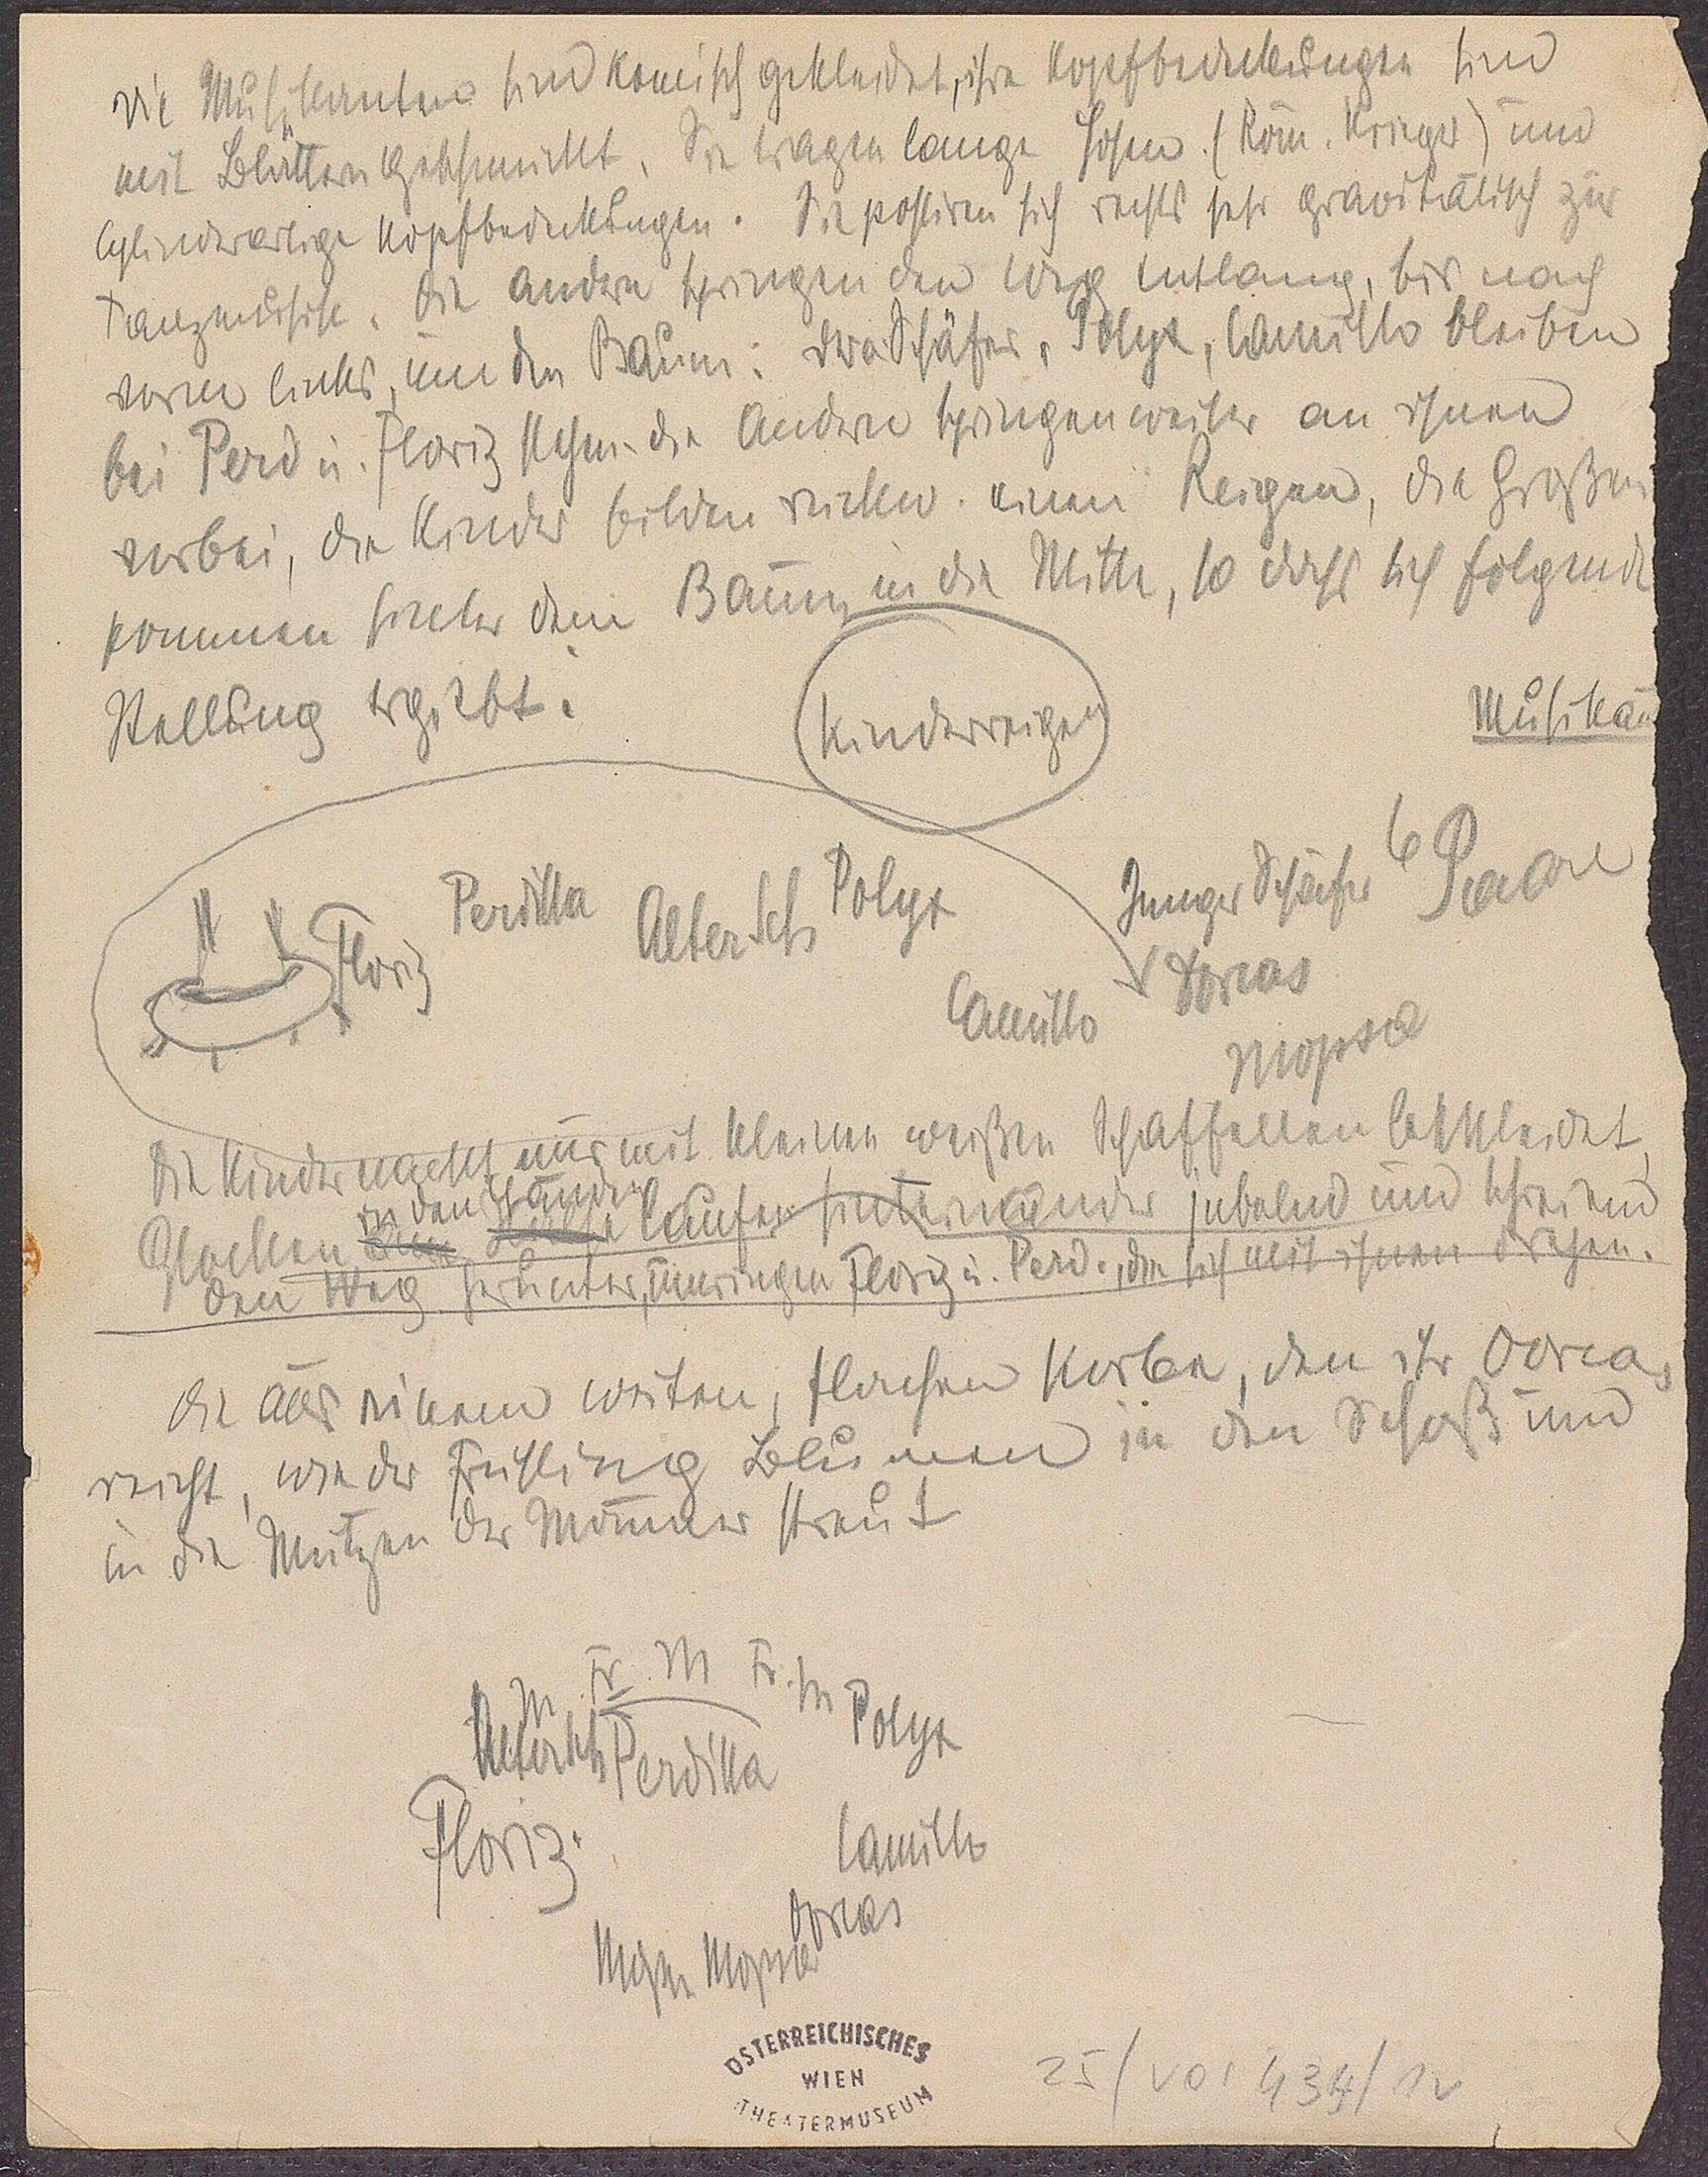 Die Musikanten sind komisch gekleidet, ihre Kopfbedeckungen sind
mit Blättern geschmückt. Sie tragen lange Hosen. (Röm. Krieger) und
Cylinderartige Kopfbedeckungen. Sie postiren sich rechts sehr gravitätisch zur
Tanzmusik. Die andern springen den Weg entlang, bis nach
vorne links, um den Baum. Schäfer, Polyx, Camillo bleiben
bei Perd u. Floriz stehn. die Andern springen weiter an ihnen
vorbei, die Kinder bilden rückw. einen Reigen, die Großen
kommen hinter dem Baum in die Mitte, so dass sich folgende
Stellung ergibt:
Kinderreigen
Musikan
Floriz
Perditta
Alter Sch
Polyx
Junger Schäfer
6 Paare
Camillo
Dorcas
Mopsa
Die Kinder nackt nur mit kleinen weißen Schaffellen bekleidet,
in den Händen
Glocken laufen hintereinander jubelnd und schreiend
den Weg herunter, umringen Floriz u. Perd., die sich mit ihnen drehen.
die aus einem weiten, flachen Korbe, den ihr Dorcas
reicht, wie der Frühling Blumen in den Schoß und
in die Mützen der Männer streut
M Fr. M Fr. M
Alter Sch Perditta
Polyx
Floriz.
Camillo
Dorcas
Mopsa
ÖSTERREICHISCHES
WIEN
THEATERMUSEUM